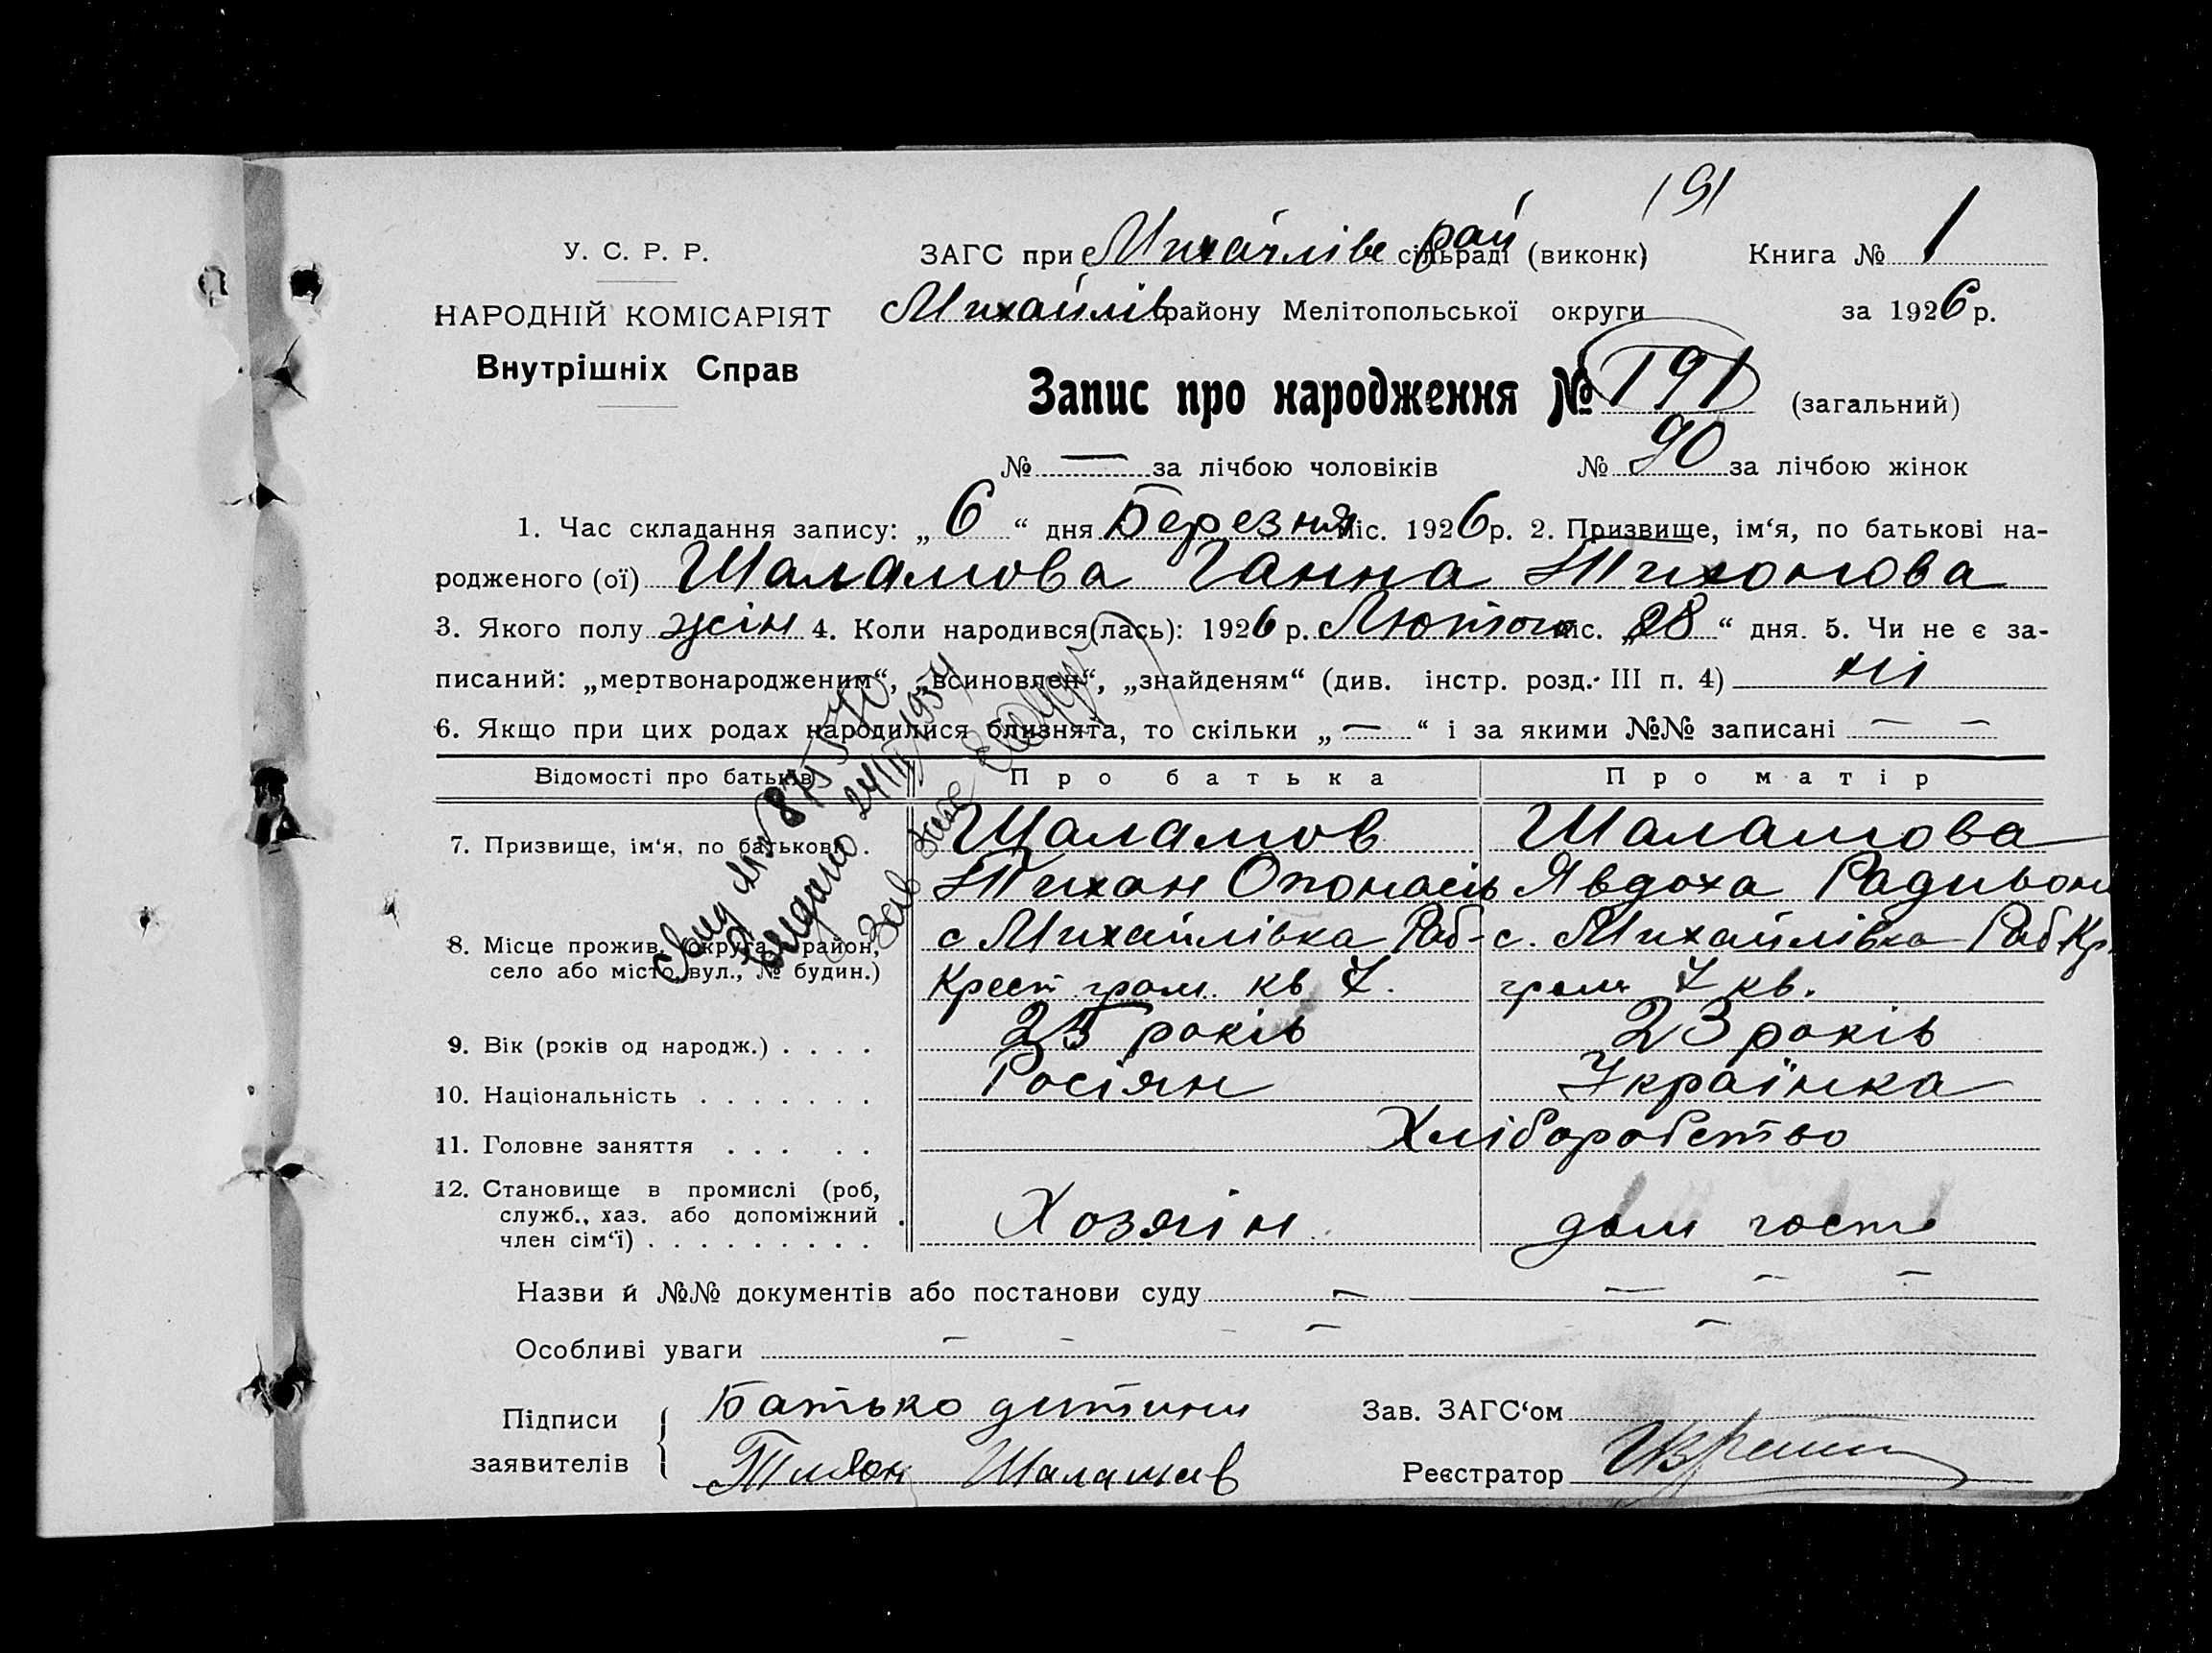 191
У. С. Р. Р.
ЗАГС при Михайлівс сільраді рай (виконк)
Книга № 1
НАРОДНІЙ КОМІСАРІЯТ
Михайлів району Мелітопольської округи
за 1926 р.
Внутрішніх Справ
Запис про народження № 191 (загальний)
№ — за лічбою чоловіків № 90 за лічбою жінок
1. Час складання запису: „ 6 “ дня Березня міс. 1926 р. 2. Призвище, ім‘я, по батькові на-
родженого (ої) Шаламова Ганна Тихонова
3. Якого полу жін 4. Коли народився(лась): 1926 р. Лютого міс. „28“ дня. 5. Чи не є за-
писаний: „мертвонародженим“, „всиновлен“, „знайденям“ (див. інстр. розд. III п. 4) ні
6. Якщо при цих родах народилися близнята, то скільки „ — “ і за якими №№ записані — —
Відомості про батьків
Про батька
Про матір
7. Призвище, ім‘я, по батькові .
Шаламов
Шаламова
Тихан Опонасів
Явдоха Радивон
8. Місце прожив. (округа, район,
село або місто, вул., № будин.)
с Михайлівка Раб-
с. Михайлівка Раб Кр.
Крест грам. кв 7.
грам 7 кв.
9. Вік (років од народж.) . . . .
25 років
23 років
10. Національність . . . . . . .
Росіян
Українка
11. Головне заняття . . . . .
Хліборобство
12. Становище в промислі (роб,
служб., хаз. або допоміжний .
член сім‘ї) . . . . . . . . .
Хозяін
дом госп
№ 875570
Видано 24/II 1934
Зав
Назви й №№ документів або постанови суду — — — —
Особливі уваги — — — —
Підписи
заявителів
Батько дитини
Тихон Шаламов
Зав. ЗАГС‘ом
Реєстратор